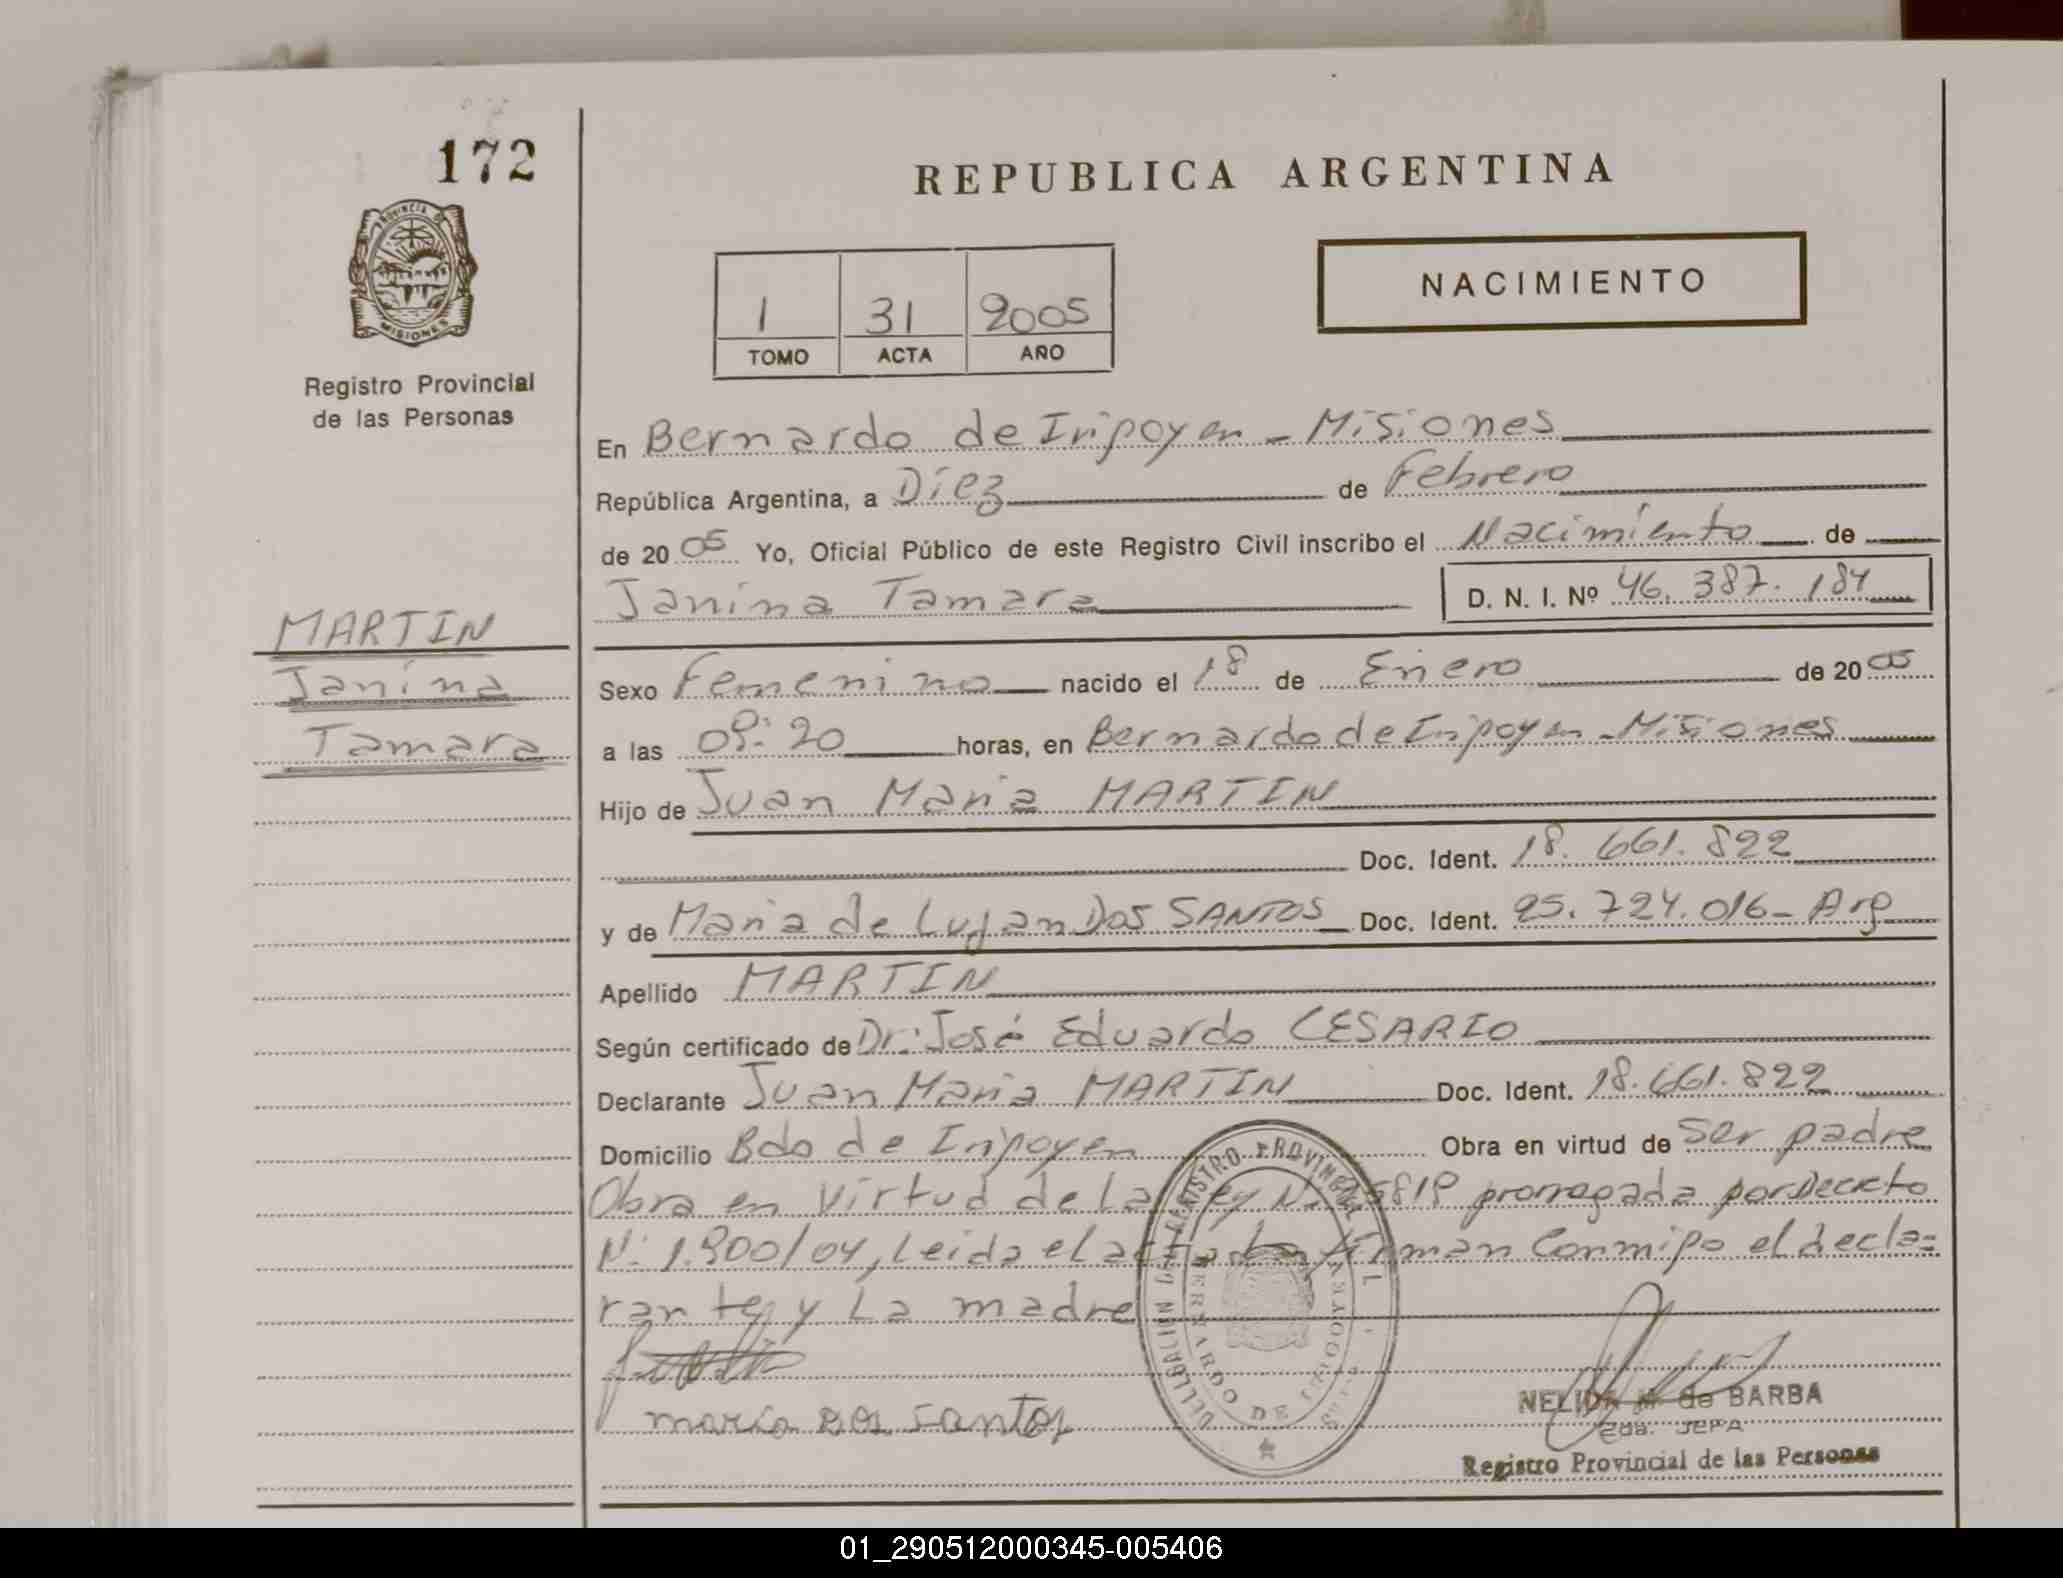 172
REPUBLICA ARGENTINA
PROVINCIA DE
MISIONES
Registro Provincial
de las Personas
1 31 2005
TOMO ACTA AÑO
NACIMIENTO
En Bernardo de Irigoyen - Misiones
República Argentina, a Diez de Febrero
de 20 05 Yo, Oficial Público de este Registro Civil inscribo el Nacimiento de
Janina Tamara D. N. I. Nº 46.387.184
MARTIN
Janina
Tamara
Sexo Femenino nacido el 18 de Enero de 20 05
a las 09:20 horas, en Bernardo de Irigoyen - Misiones
Hijo de Juan Maria MARTIN
Doc. Ident. 18.661.822
y de Maria de Lujan Dos SANTOS Doc. Ident. 25.724.016- Arg
Apellido MARTIN
Según certificado de Dr: José Eduardo CESARIO
Declarante Juan Maria MARTIN Doc. Ident. 18.661.822
Domicilio Bdo de Irigoyen Obra en virtud de Ser padre
Obra en Virtud de La Ley Nº 25819 prorrogada por Decreto
Nº 1.900/04, Leida el acta La firman Conmigo el decla=
rante, y La madre
maria dos santos
DELEGACION DEL REGISTRO PROVINCIAL
BERNARDO DE IRIGOYEN
NELIDA M. de BARBA
2da. JEFA
Registro Provincial de las Personas
01_290512000345-005406